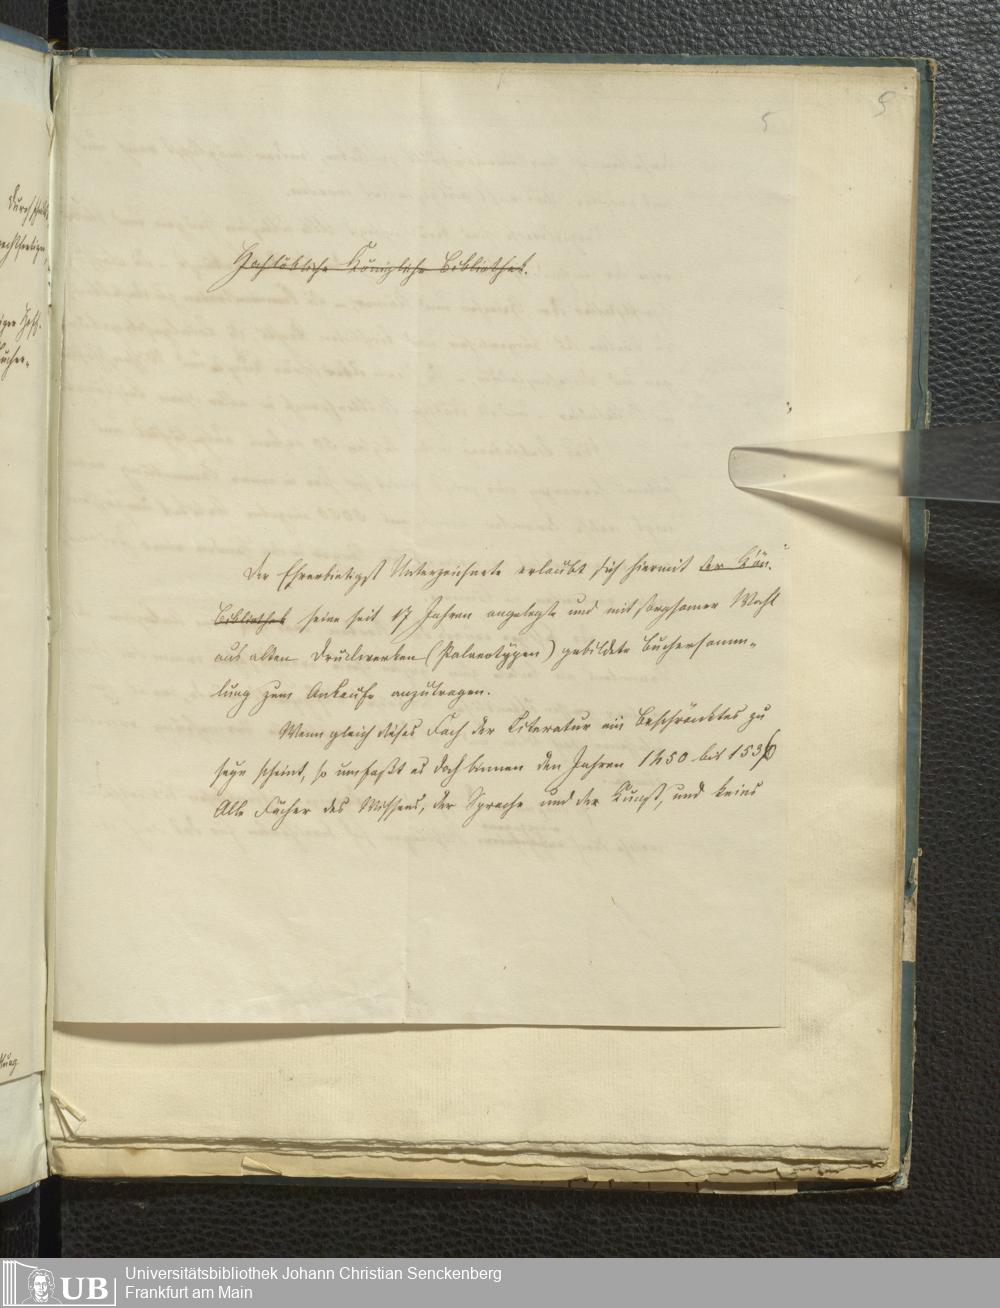 5
5
Hochlöbliche Königliche Bibliothek.
Der Ehrerbietigst Unterzeichnete erlaubt sich hiermit der Kön.
Bibliothek seine seit 17 Jahren angelegte und mit sorgsamer Wahl
aus alten Druckwerken (Palaeotypen) gebildete Büchersamm-
lung zum Ankaufe anzutragen.
Wenn gleich dieses Fach der Literatur ein beschränktes zu
seyn scheint, so umfaßt es doch binnen den Jahren 1450 bis 1536
Alle Fächer des Wissens, der Sprache und der Kunst, und keines
UB
Universitätsbibliothek Johann Christian Senckenberg
Frankfurt am Main